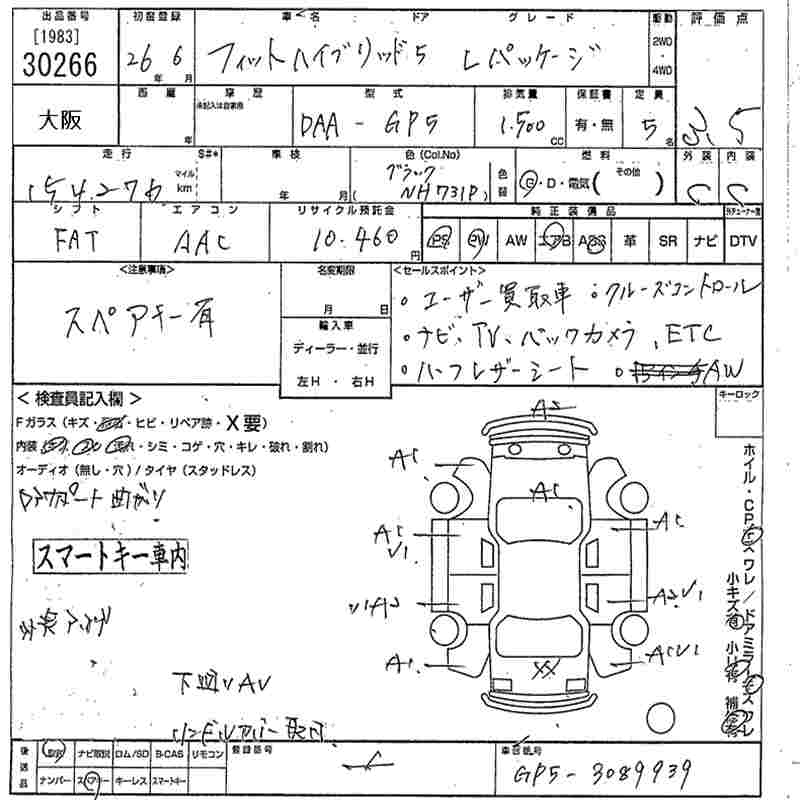 出品番号 初度登録 車名 ドア グレード 駆動 評価点
[1983]
30266 26年 6月 フィットハイブリッド 5 Lパッケージ 2WD・4WD 3.5
大阪 西暦 年 車歴 未記入は自家用 型式 排気量 保証書 定員
DAA - GP5 1.500cc 有・無 5名
走行 S#* 車検 色(Col,No) 燃料 外装 内装
154.276 マイル km 年 月 ブラック (NH731P) 色替 G・D・電気( その他 ) C C
シフト エアコン リサイクル預託金 純正装備品
FAT AAC 10.460円 PS PW AW エアB ABS 革 SR ナビ DTV
<注意事項> 名変期限 <セールスポイント>
スペアキー有 月 日 ・ユーザー買取車 ・クルーズコントロール
輸入車 ・ナビ、TV、バックカメラ、ETC
ディーラー・並行 ・ハーフレザーシート
左H・右H ・AW
<検査員記入欄> キーロック
Fガラス(キズ・ヒビ・リペア跡・X要)
内装(・シミ・コゲ・穴・キレ・破れ・割れ)
オーディオ(無し・穴)/タイヤ(スタッドレス)
曲がり
スマートキー車内
A2
A1
A1
A1
A1 V1
A1
V1 A2
A2 V1
A1
A1 V1
XX
後送品 取説 ナビ取説 ロム/SD B-CAS リモコン 登録番号 車台番号
ナンバー スペアキー キーレス スマートキー GP5-3089939